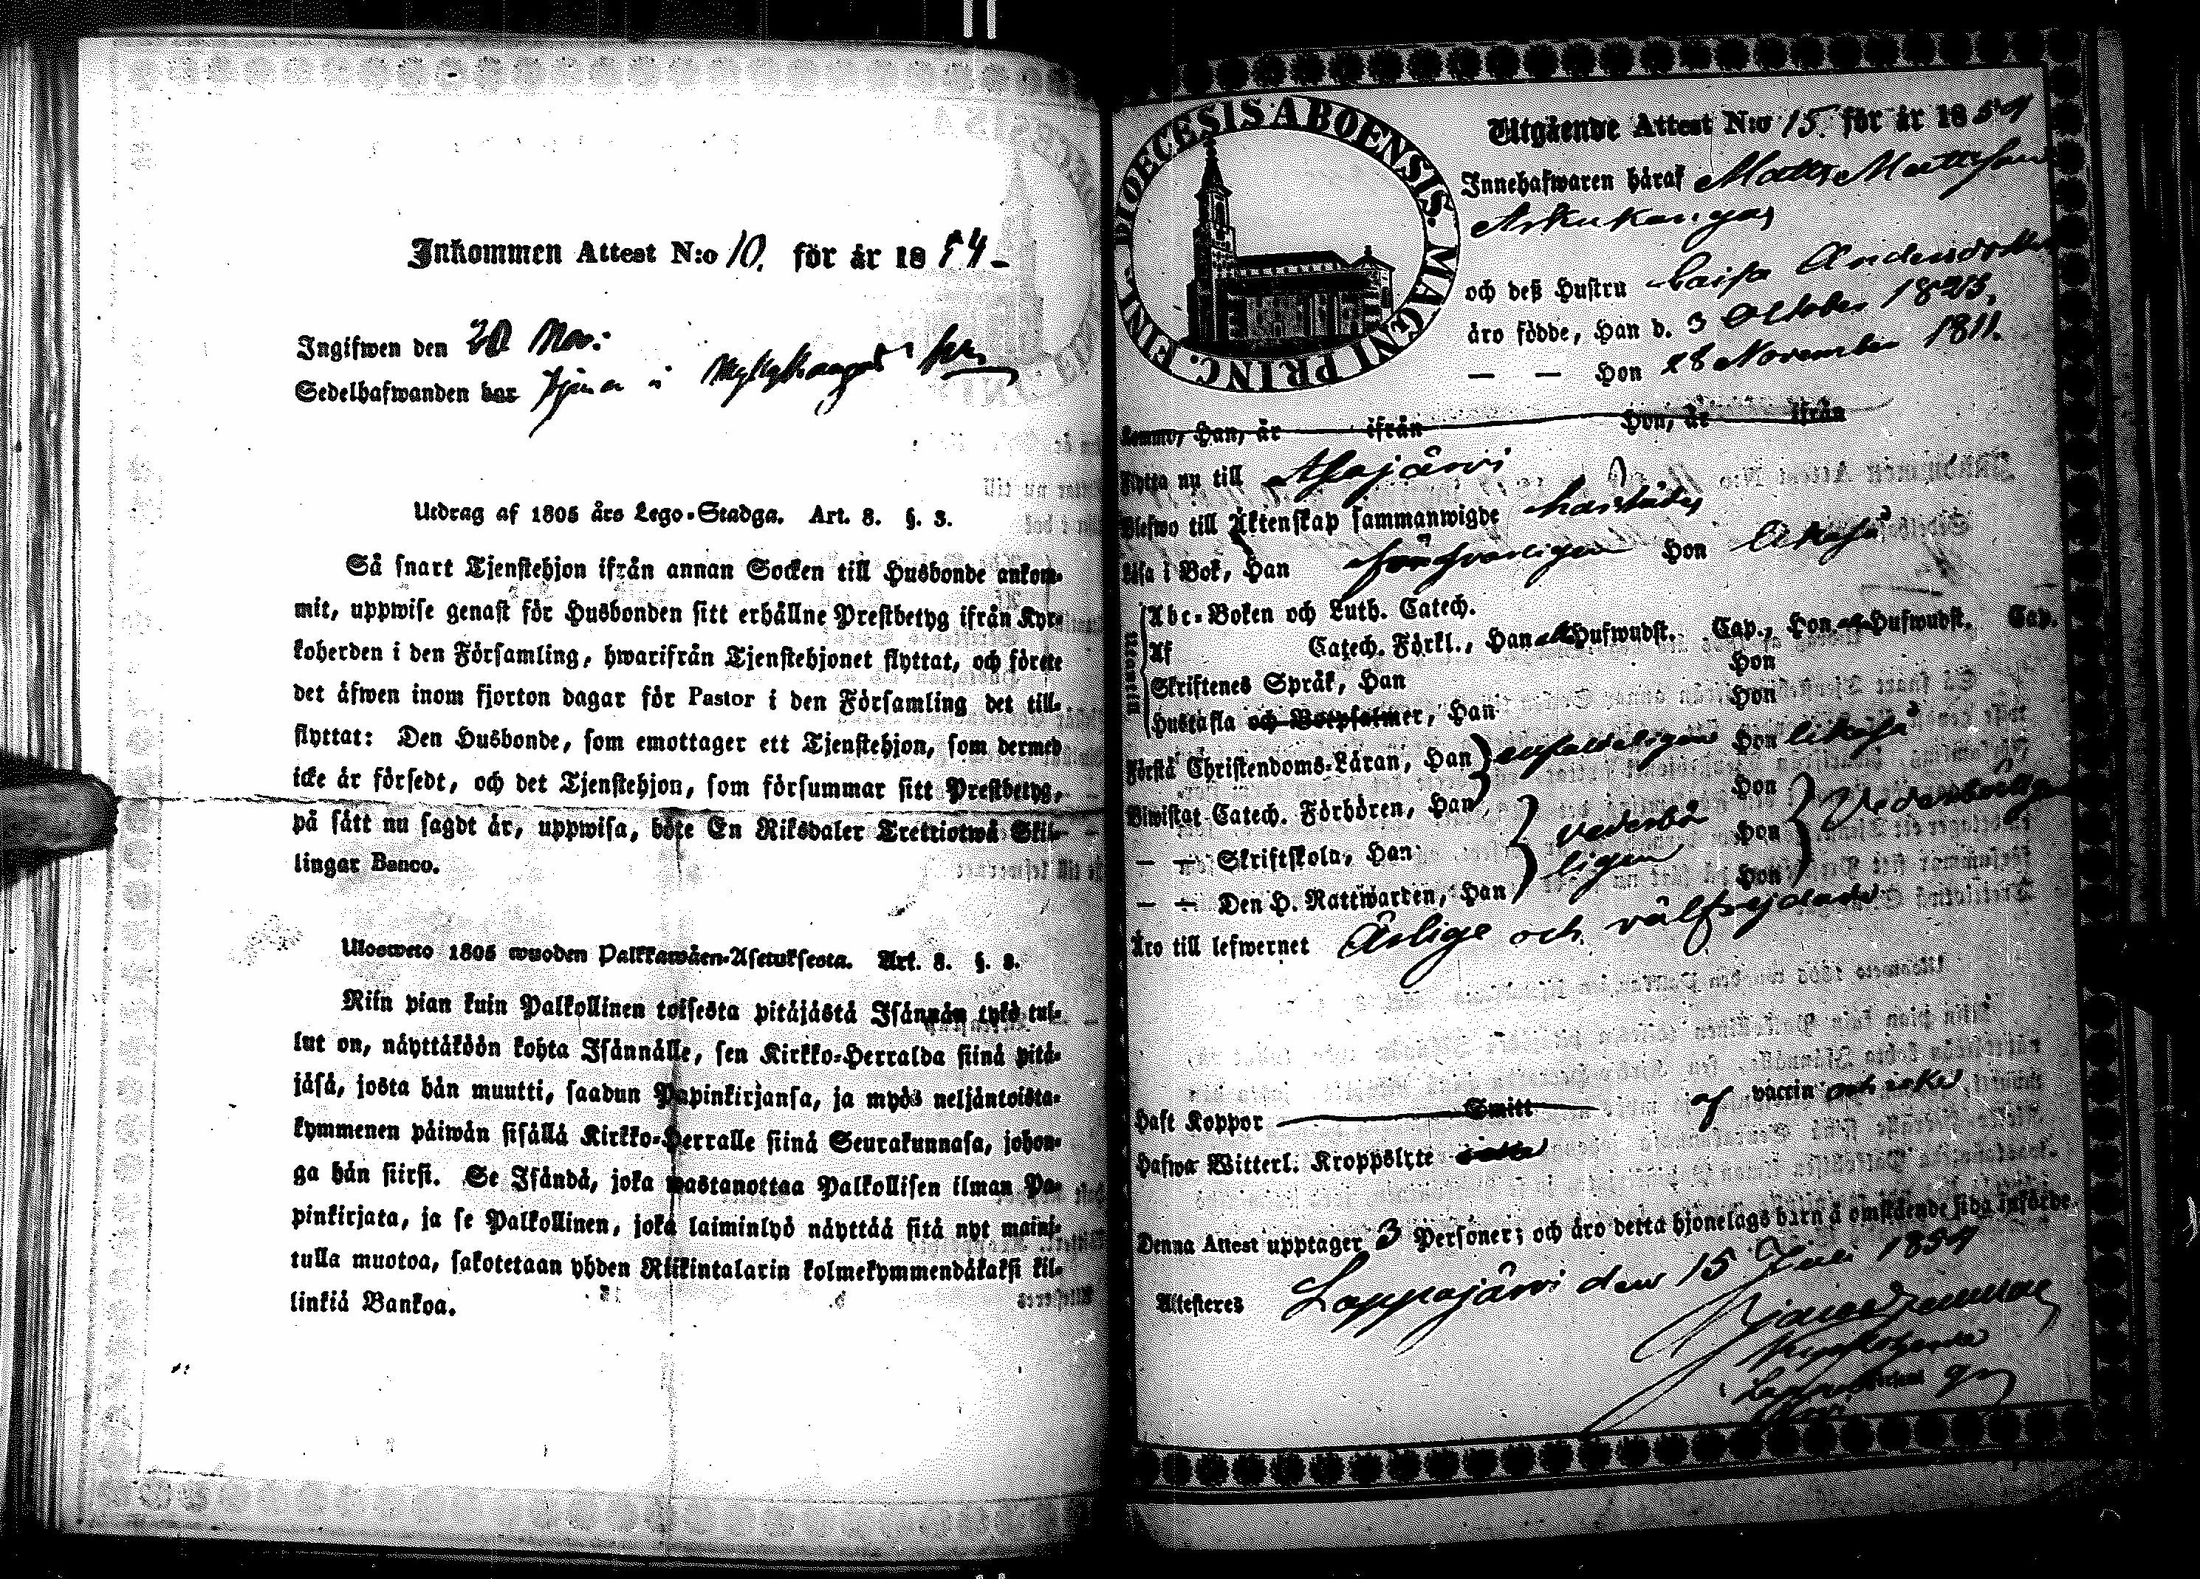 Inkommen Attest N:o 10. för år 1854.
Ingifwen den 20 Nov:
Sedelhafwanden bar tjena i
Utdrag af 1805 års Lego-Stadga. Art. 8. §. 3.
Så snart Tjenstehjon ifrån annan Socken till Husbonde ankom-
mit, uppwise genast för Husbonden sitt erhållne Prestbetyg ifrån Kyr-
koherden i den Församling, hwarifrån Tjenstehjonet flyttat, och förete
det äfwen inom fjorton dagar för Pastor i den Församling det till-
flyttat: Den Husbonde, som emottager ett Tjenstehjon, som dermed
icke är försedt, och det Tjenstehjon, som försummar sitt Prestbetyg,
på sätt nu sagdt är, uppwisa, böte En Riksdaler Trettiotwå Skil-
lingar Banco.
Ulosweto 1805 wuoden Palkkawäen-Asetuksesta. Art. 8. §. 3.
Niin pian kuin Palkollinen toisesta pitäjästä Isännän tykö tul-
lut on, näyttäköön kohta Isännälle, sen Kirkko-Herralda siinä pitä-
jäsä, josta hän muutti, saadun Papinkirjansa, ja myös neljäntoista-
kymmenen päiwän sisällä Kirkko-Herralle siinä Seurakunnasa, johon-
ga hän siirsi. Se Isändä, joka wastanottaa Palkollisen ilman Pa-
pinkirjata, ja se Palkollinen, joka laiminlyö näyttää sitä nyt maini-
tulla muotoa, sakotetaan yhden Riikintalarin kolmekymmendäkaksi kil-
linkiä Bankoa.
DIOECESIS ABOENSIS. MAGNI PRINC. FINL.
Utgående Attest N:o 15. för år 1854
Innehafwaren häraf Matts Mattsson
Askukangas
och deß Hustru Caisa Andersdotter
äro födde, Han d. 3 Oktober 1823.
— — Hon 28 November 1811.
komne, Han, år ifrån Hon, år ifrån
Flytta nu till Alajärvi
Blefwo till Äktenskap sammanwigde härstädes
Läsa i Bok, Han försvarligen Hon likaså
Utantill
Abc-Boken och Luth. Catech.
Af Catech. Förkl., Han alla Hufwudst. Cap., Hon alla Hufwudst. Cap.
Skriftenes Språk, Han Hon
Hustafla och Botpsalmer, Han Hon
Förstå Christendoms-Läran, Han enfaldeligen Hon likaså
Biwistat Catech. Förhören, Han Hon
— — Skriftskola, Han vederbörligen Hon Vederbörligen
— — Den H. Nattwarden, Han Hon
Äro till lefwernet Ärlige och välfrejdade
Haft Koppor Smitt af vaccin
Hafwa Witterl. Kroppslyte
Denna Attest upptager 3 Personer; och äro detta hjonelags barn å omstående sida införde.
Attesteres Lappajärvi den 15 Juli 1854